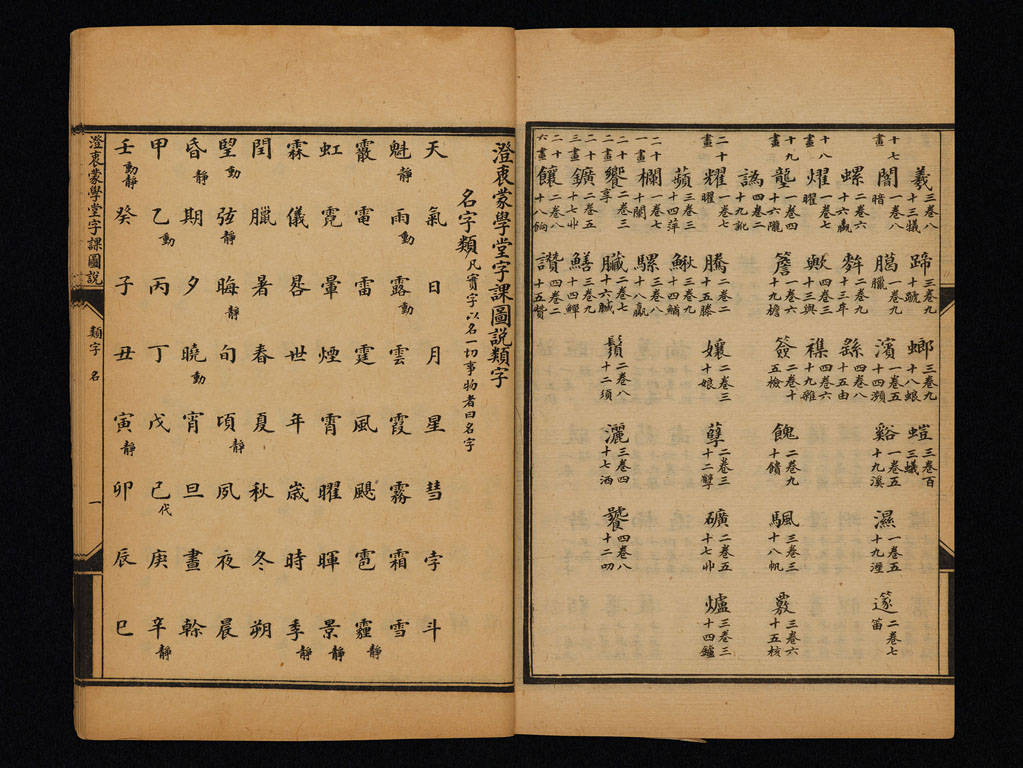 羲 三卷八十三犧 蹏 三卷九十蹄 螂 三卷九十八蜋 螘 三卷百三蟻
十七畫 闇 一卷八暗 臈 一卷九臘 濱 一卷五十四瀕 谿 一卷五十九溪 濕 一卷五十九溼 篴 二卷七笛
螺 二卷六十六蠃 二卷九十三牟 繇 四卷八十五由
十八畫 燿 一卷七曜 歟 四卷三十三與 襍 四卷六十九雜
十九畫 壟 一卷四十六隴 簷 一卷六十九檐 簽 二卷十五檢 餽 二卷九十饋 颿 三卷三十八帆 覈 三卷六十五核
譌 四卷二十九訛
二十畫 耀 一卷七曜 騰 二卷九十五滕 孃 二卷三十娘 孽 二卷三十二孼 礦 二卷五十七卝 爐 三卷三十四鑪
蘋 三卷三十四萍 鰍 三卷九十四鰌
二十一畫 欄 一卷七十闌 騾 三卷八十八驘
二十二畫 饗 二卷三享 臟 二卷七十六臓 鬚 二卷八十二須 灑 三卷四十七洒 饕 四卷八十二叨
二十三畫 鑛 二卷五十七卝 鱔 三卷九十四鱓
二十六畫 饟 二卷八十八餉 讚 四卷二十五贊
澄衷蒙學堂字課圖說類字
名字類 凡實字以名一切事物者曰名字
天 氣 日 月 星 彗 孛 斗
魁靜 雨動 露動 雲 霞 霧 霜 雪
霰 電 雷 霆 風 颶 雹 霾靜
虹 霓 暈 煙 霄 曜 暉 景靜
霖 儀 晷 世 年 歲 時 季靜
閏 臘 暑 春 夏 秋 冬 朔
望動 弦靜 晦靜 旬 頃靜 夙 夜 晨
昏靜 期 夕 曉動 宵 旦 晝 榦
甲 乙動 丙 丁 戊 己代 庚 辛靜
壬動靜 癸 子 丑 寅靜 卯 辰 巳
澄衷蒙學堂字課圖說 類字 名 一